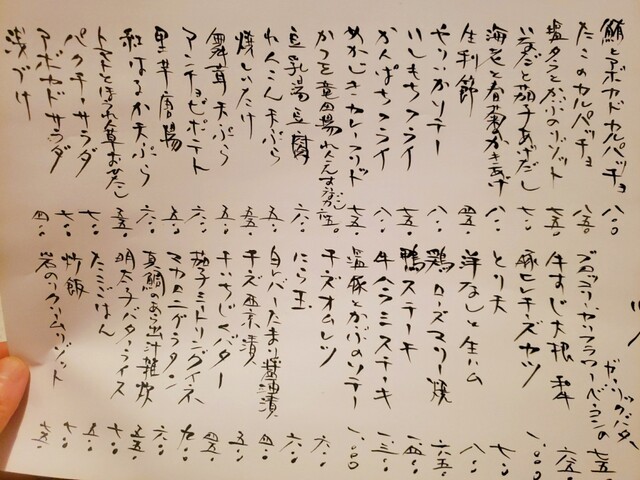 鮪とアボカドカルパッチョ 八〇〇
たこのカルパッチョ 八五〇
塩タラとかぶのリゾット 七五〇
いなだと茄子あげだし 七五〇
海老と春菊のかきあげ 八〇〇
生利節 四五〇
やりいかソテー 八〇〇
いしもちフライ 七五〇
かんぱちフライ 八〇〇
めかじきカレーフリット 七五〇
かつを竜田揚
豆乳湯豆腐 六〇〇
れんこん天ぷら 五〇〇
焼しいたけ 五五〇
舞茸天ぷら 五五〇
アンチョビポテト 五〇〇
里芋唐揚 六〇〇
紅はるか天ぷら 六〇〇
トマトとほうれん草おひたし 五五〇
パクチーサラダ 七〇〇
アボカドサラダ 七〇〇
浅づけ 四〇〇
ガーリックバター
ブロッコリーカリフラワーベーコンの 七五〇
牛すじ大根 六五〇
豚ヒレチーズカツ 一、〇〇〇
とり天 七〇〇
洋なしと生ハム 八〇〇
鶏ローズマリー焼 六五〇
鴨ステーキ
牛ハラミステーキ
塩豚とかぶのソテー 一、〇〇〇
チーズオムレツ 六〇〇
にら玉 六〇〇
白レバーたまり醤油漬 四〇〇
チーズ西京漬 五五〇
干いちじくバター 四五〇
茄子ミートグリンダイス
マカロニグラタン 九〇〇
真鯛のあら出汁雑炊 六〇〇
明太子バターライス 五五〇
たこごはん 七〇〇
炒飯 七〇〇
岩のりクリームリゾット 七五〇